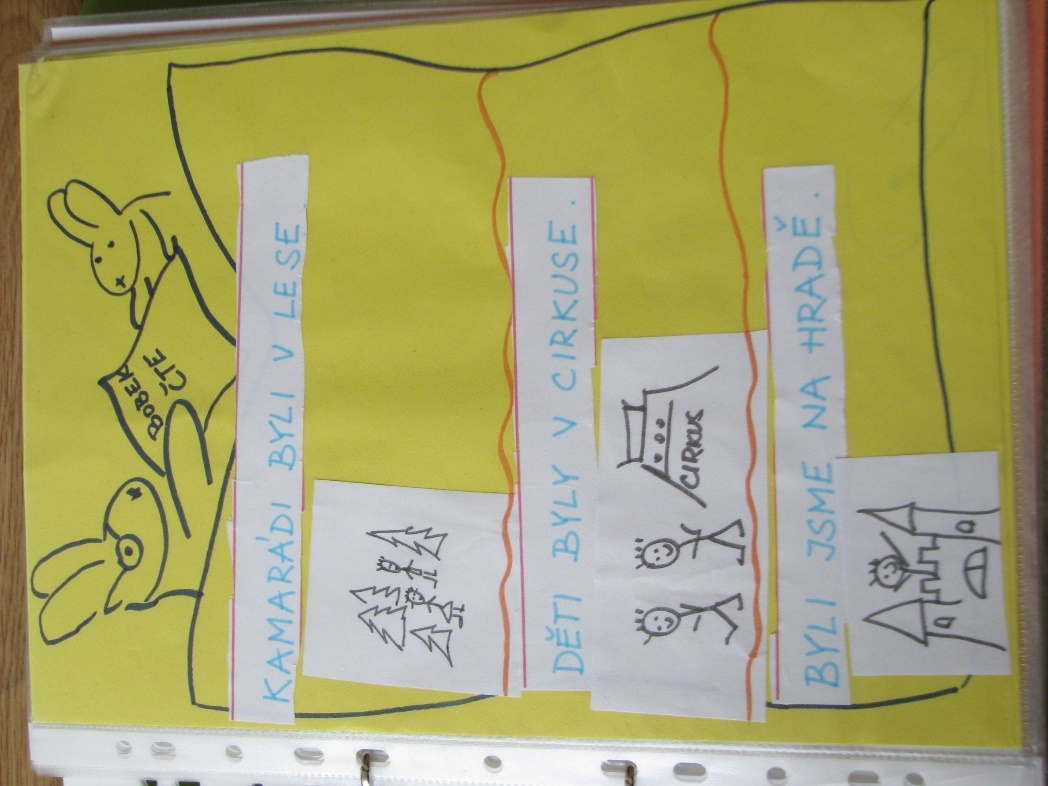 BOBEK
ČTE
KAMARÁDI BYLI V LESE
DĚTI BYLY V CIRKUSE.
CIRKUS
BYLI JSME NA HRADĚ.